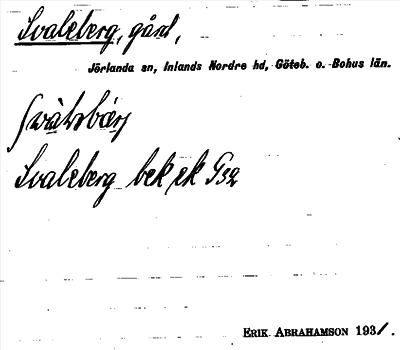 Svaleberg, gård,
Jörlanda sn, Inlands Nordre hd, Göteb. o. Bohus län.
Svaleberg bek ek G32
ERIK ABRAHAMSON 1931.